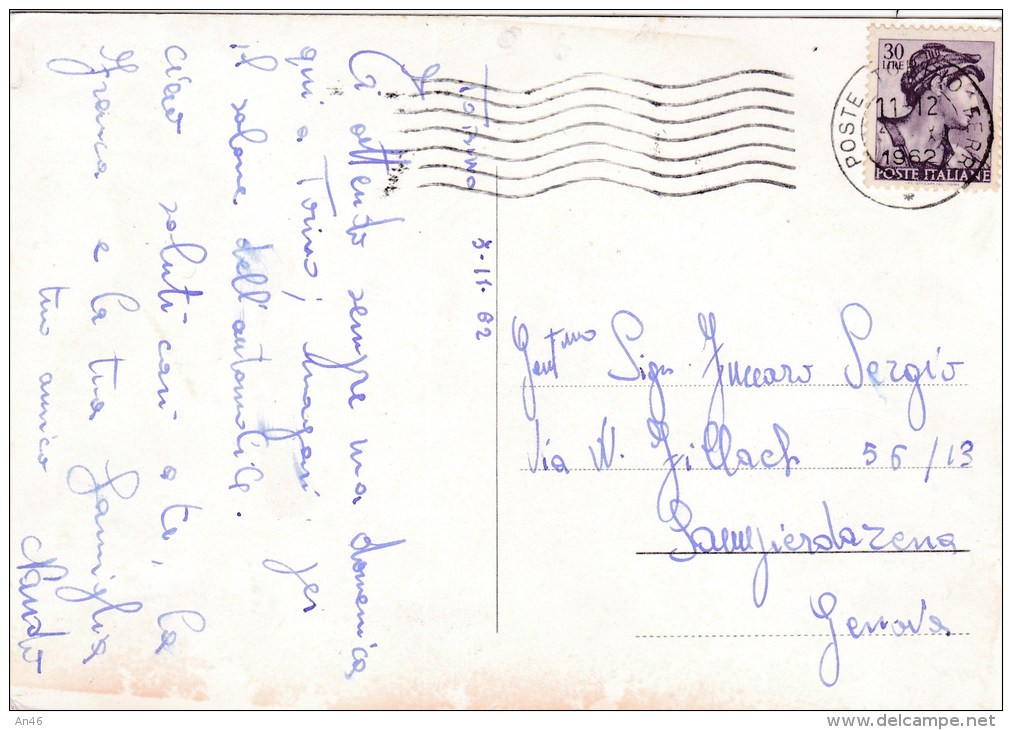 Torino 3-11-62
Ti attento sempre una domenica
qui a Torino, magari per
il salone dell'automobile.
ciao saluti cari a te, la
Franca e la tua famiglia
tuo amico
Nando
30
LIRE
POSTE TORINO FERR
11-12
1962
POSTE ITALIANE
Gent.mo Sign Zuccaro Sergio
Via N. 56/13
Sampierdarena
Genova
An46
delcampe.net